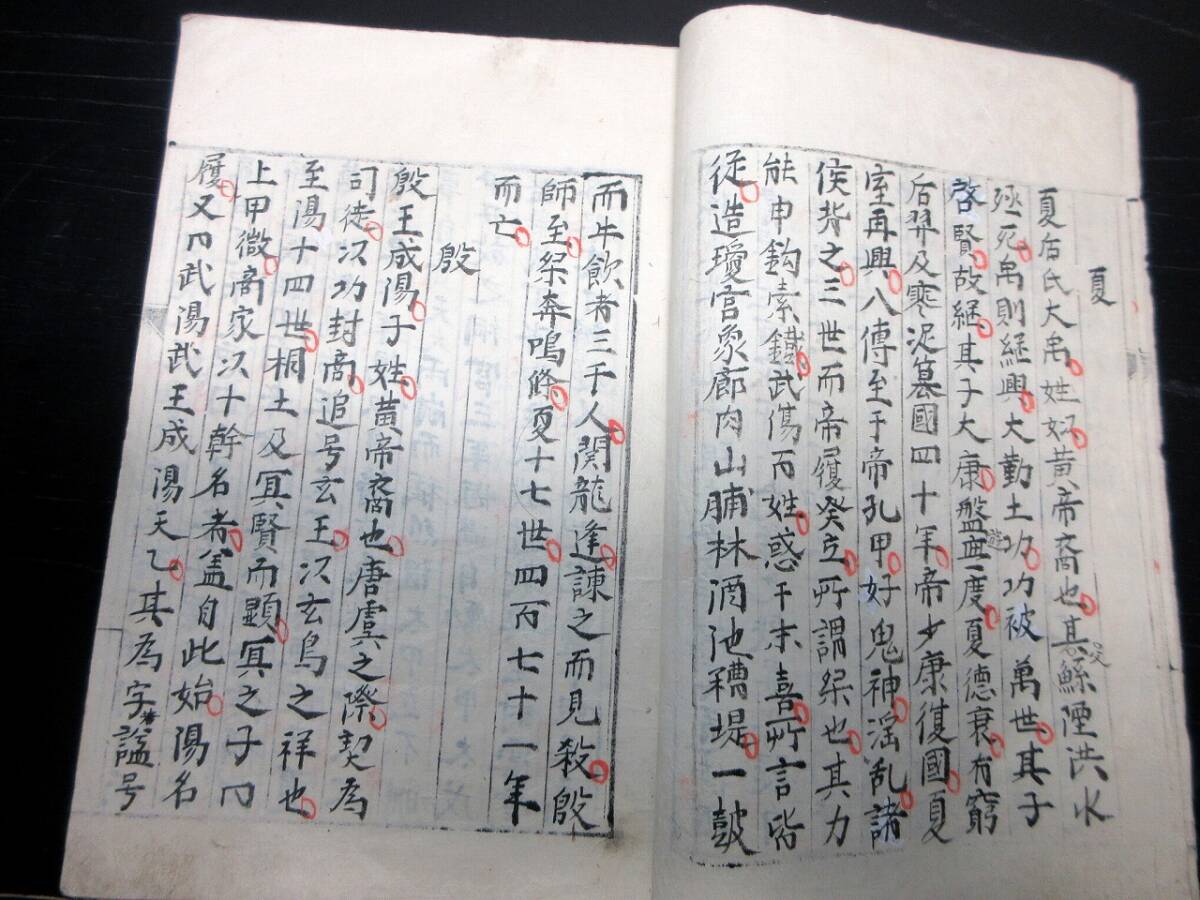 夏
夏后氏大禹姓姒黃帝裔也其父鯀陻洪水
殛死禹則継興大勤土功功被萬世其子
啓賢故継其子大康盤遊無度夏德衰有窮
后羿及寒浞簒國四十年帝少康復國夏
室再興八傳至于帝孔甲好鬼神淫乱諸
侯背之三世而帝履癸立所謂桀也其力
能申鈎索鐵武傷百姓惑于末喜所言皆
從造瓊宮象廊肉山脯林酒池糟堤一皷
而牛飲者三千人関龍逢諫之而見殺殷
師至桀奔鳴條夏十七世四百七十一年
而亡
殷
殷王成湯子姓黃帝裔也唐虞之際契為
司徒以功封商追号玄王以玄鳥之祥也
至湯十四世桐土及冥賢而顕冥之子曰
上甲微商家以十幹名者盖自此始湯名
履又曰武湯武王成湯天乙其為字謚号